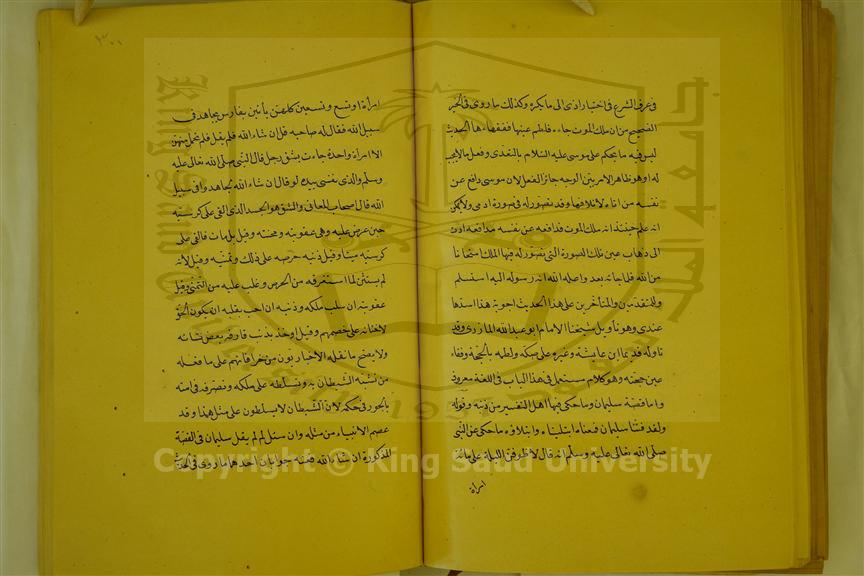 في عرف الشرع في اختيار اذى الى ما يكره وكذلك ما روى في الخبر
الصحيح من ان ملك الموت جاءه فلطم عينه ففقأها الحديث
ليس فيه ما يحكم على موسى عليه السلام بالتعدى وفعل ما لا يجب
له اذ هو ظاهر الامر بين الوجه جائز الفعل لان موسى دافع عن
نفسه من اتاه لاتلافها وقد تصور له في صورة ادمى ولا يمكن
انه علم حينئذ انه ملك الموت فدافعه عن نفسه مدافعة ادت
الى ذهاب عين تلك الصورة التى تصور له فيها الملك امتحانا
من الله فلما جاءه بعد واعلمه الله انه رسوله اليه استسلم
وللمتقدمين والمتأخرين على هذا الحديث اجوبة هذا اسدها
عندى وهو تأويل شيخنا الامام ابو عبد الله المازرى وقد
تأوله قديما ابن عايشة وغيره على صكه ولطمه بالحجة وفقاء
عين حجته وهو كلام مستعمل في هذا الباب في اللغة معروف
واما قصة سليمان وما حكى فيها اهل التفسير من ذنبه وقوله
ولقد فتنا سليمان فمعناه ابتليناه وابتلاؤه ما حكى عن النبى
صلى الله تعالى عليه وسلم انه قال لاطوفن الليلة على مائة
امرأة
امرأة او تسع وتسعين كلهن يأتين بفارس يجاهد في
سبيل الله فقال له صاحبه قل ان شاء الله فلم يقل فلم تحمل منهن
الا امرأة واحدة جاءت بشق رجل قال النبى صلى الله تعالى عليه
وسلم والذى نفسى بيده لو قال ان شاء الله لجاهدوا في سبيل
الله قال اصحاب المعانى والشق هو الجسد الذى القى على كرسيه
حين عرض عليه وهى عقوبته ومحنته وقيل بل مات فالقى على
كرسيه ميتا وقيل ذنبه حرصه على ذلك وتمنيه وقيل لانه
لم يستثن لما استغرقه من الحرص وغلب عليه من التمنى وقيل
عقوبته ان سلب ملكه وذنبه ان احب بقلبه ان يكون الحق
لاختانه على خصمهم وقيل اوخذ بذنب قارفه بعض نسائه
ولا يصح ما نقله الاخباريون من خرافاتهم على ما فعله
من تشبه الشيطان به وتسلطه على ملكه وتصرفه في امته
بالجور في حكمه لان الشيطان لا يسلطون على مثل هذا وقد
عصم الانبياء من مثله وان سئل لم لم يقل سليمان في القصة
المذكورة ان شاء الله فعنه جوابان احدهما ما روى في الحديث
Copyright © King Saud University
جامعة الملك سعود